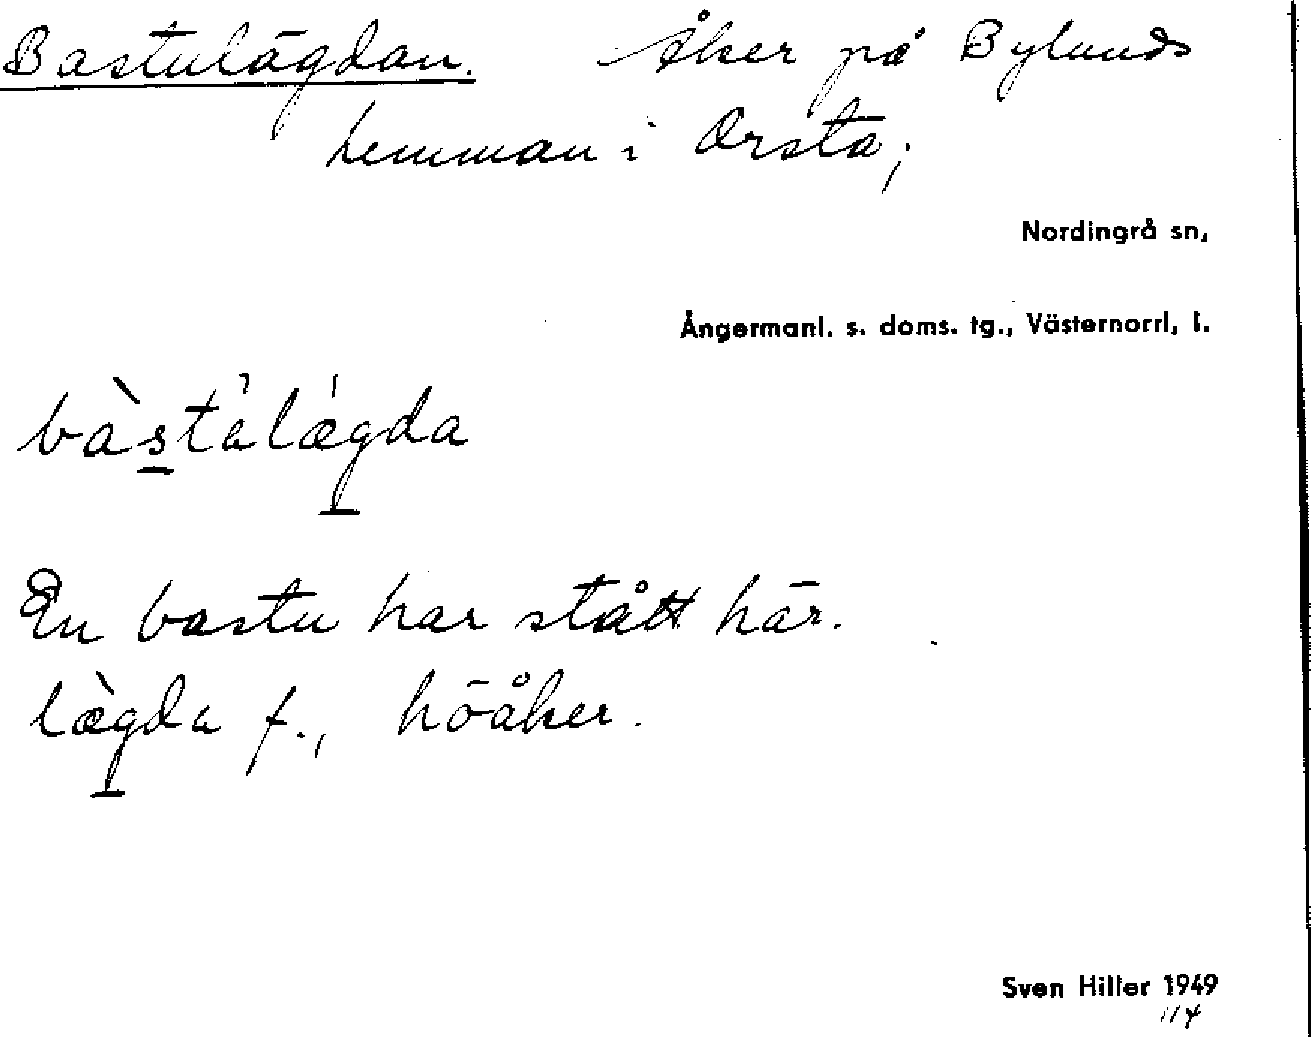 Bastulägdan. Åker på Bylunds
hemman i Orsta,
Nordingrå sn,
Ångermanl. s. doms. tg., Västernorrl, l.
bàstálǽgda
En bastu har stått här.
læ̀gda f., höåker.
Sven Hiller 1949
114